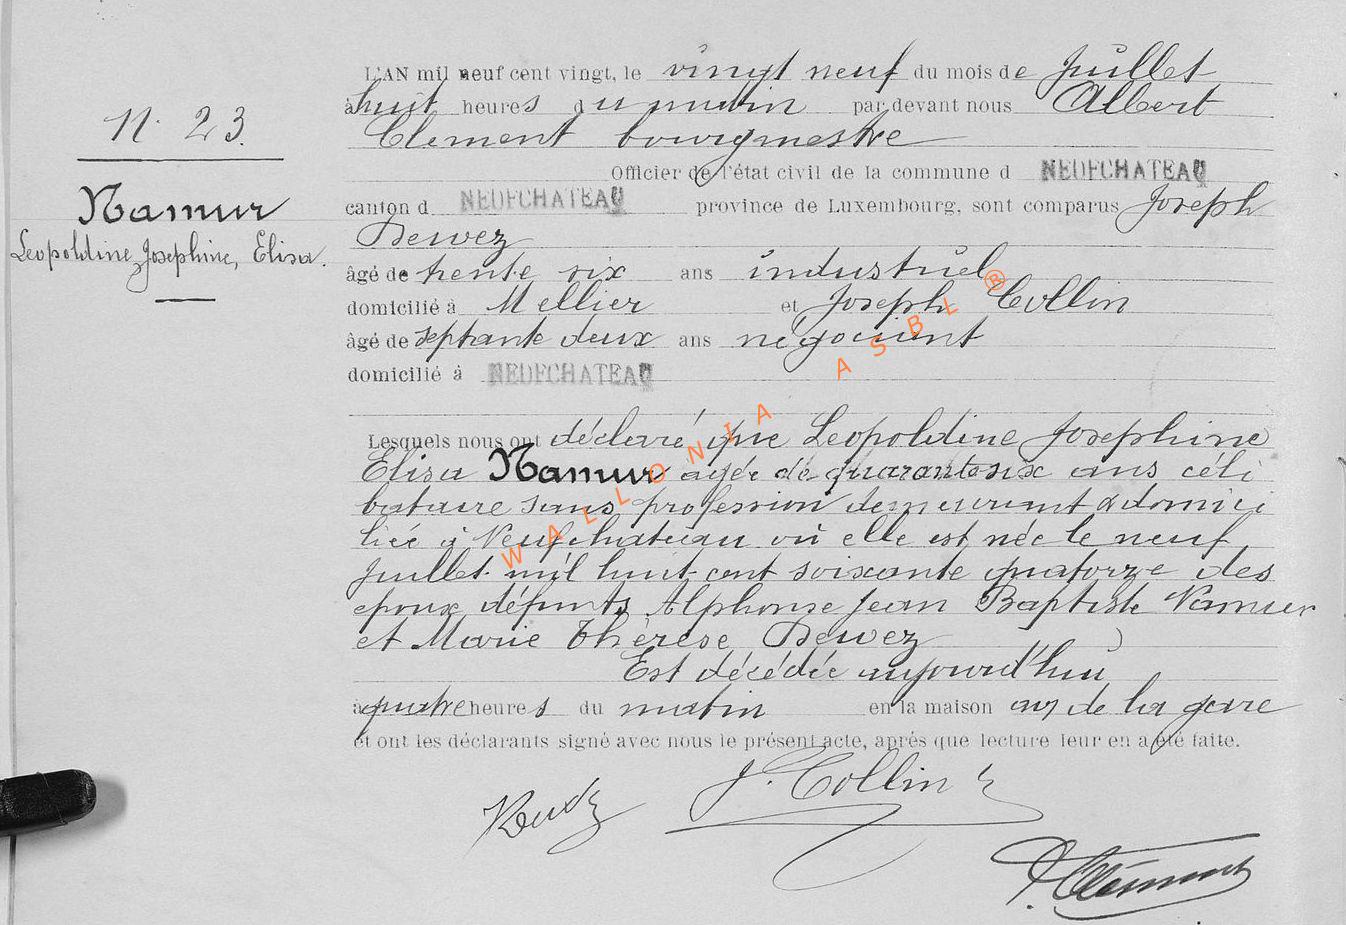 N. 23.
Namur
Leopoldine, Josephine, Elisa.
L'AN mil neuf cent vingt, le vingt neuf du mois de Juillet
à huit heures du matin par devant nous Albert
Clement bourgmestre
Officier de l'état civil de la commune d NEUFCHATEAU
canton d NEUFCHATEAU province de Luxembourg, sont comparus Joseph
Dewez
âgé de trente six ans industriel
domicilié à Mellier et Joseph Collin
âgé de septante deux ans négociant
domicilié à NEUFCHATEAU
Lesquels nous ont déclaré que Leopoldine Josephine
Elisa Namur agée de quarante six ans céli
bataire sans profession demeurant & domici
liée à Neufchateau où elle est née le neuf
Juillet mil huit cent soixante quatorze des
epoux défunts Alphonse Jean Baptiste Namur
et Marie Thèrèse Dewez
Est décédée aujourd'hui
à quatre heures du matin en la maison av de la gare
et ont les déclarants signé avec nous le présent acte, après que lecture leur en a été faite.
J. Collin
Clément
WALLONIA ASBL ®